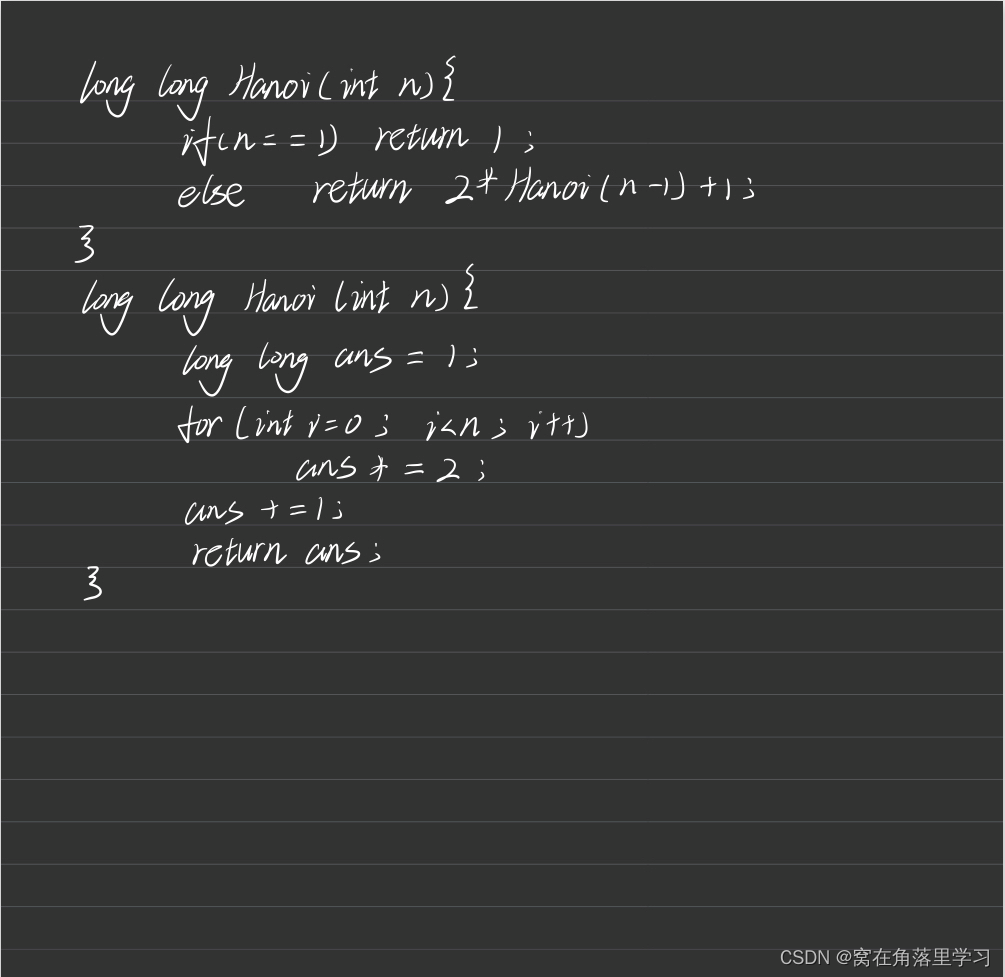 long long Hanoi(int n){
if(n==1) return 1;
else return 2*Hanoi(n-1)+1;
}
long long Hanoi(int n){
long long ans = 1;
for(int i=0; i<n; i++)
ans *= 2;
ans +=1;
return ans;
}
CSDN @窝在角落里学习